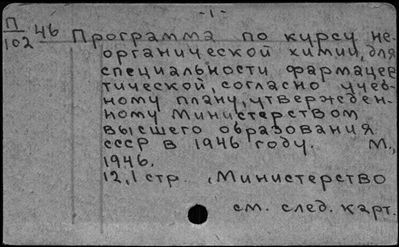 -1-
П/102 46 Программа по курсу не-
органической химии, для
специальности фармацев
тической, согласно учеб-
ному плану, утвержден-
ному Министерством
высшего образования
СССР в 1946 году. М.,
1946.
12,1 стр. , Министерство
см. след. карт.